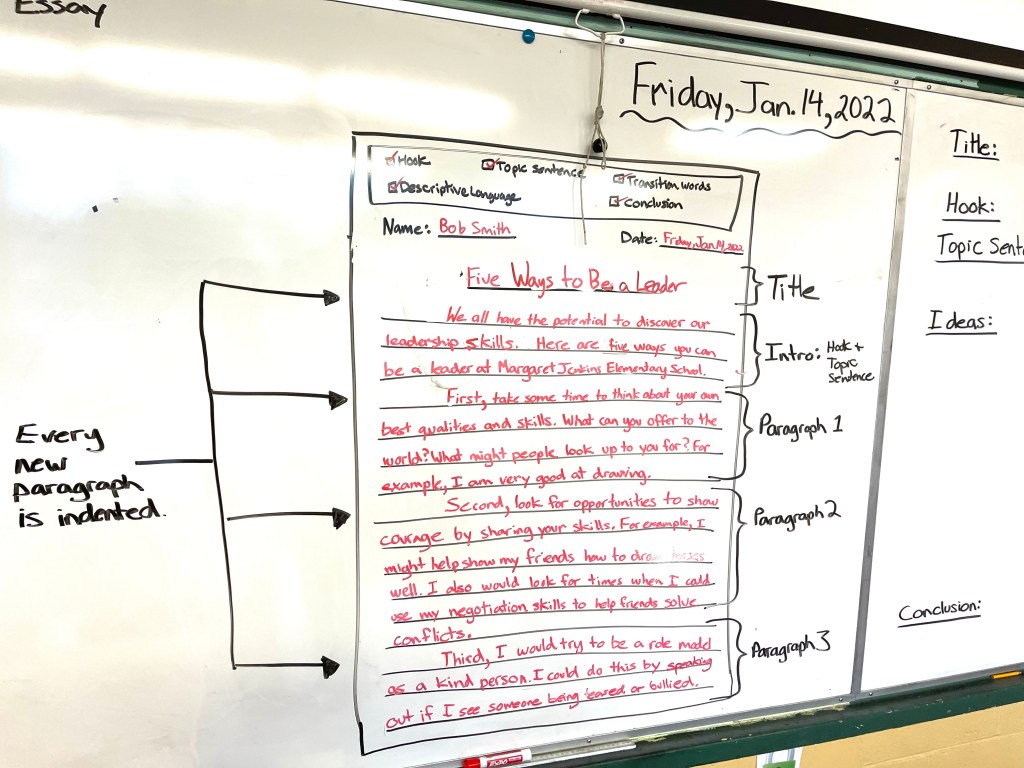 Essay
Friday, Jan. 14, 2022
Hook
Topic sentence
Transition words
Descriptive Language
Conclusion
Name: Bob Smith
Date: Friday, Jan. 14, 2022
Five Ways to Be a Leader
We all have the potential to discover our
leadership skills. Here are five ways you can
be a leader at Margaret Jenkins Elementary School.
First, take some time to think about your own
best qualities and skills. What can you offer to the
world? What might people look up to you for? For
example, I am very good at drawing.
Second, look for opportunities to show
courage by sharing your skills. For example, I
might help show my friends how to draw horses
well. I also would look for times when I could
use my negotiation skills to help friends solve
conflicts.
Third, I would try to be a role model
as a kind person. I could do this by speaking
out if I see someone being teased or bullied.
Title
Intro: Hook +
Topic
Sentence
Paragraph 1
Paragraph 2
Paragraph 3
Every
new
paragraph
is indented.
Title:
Hook:
Topic
Ideas:
Conclusion:
EXPO